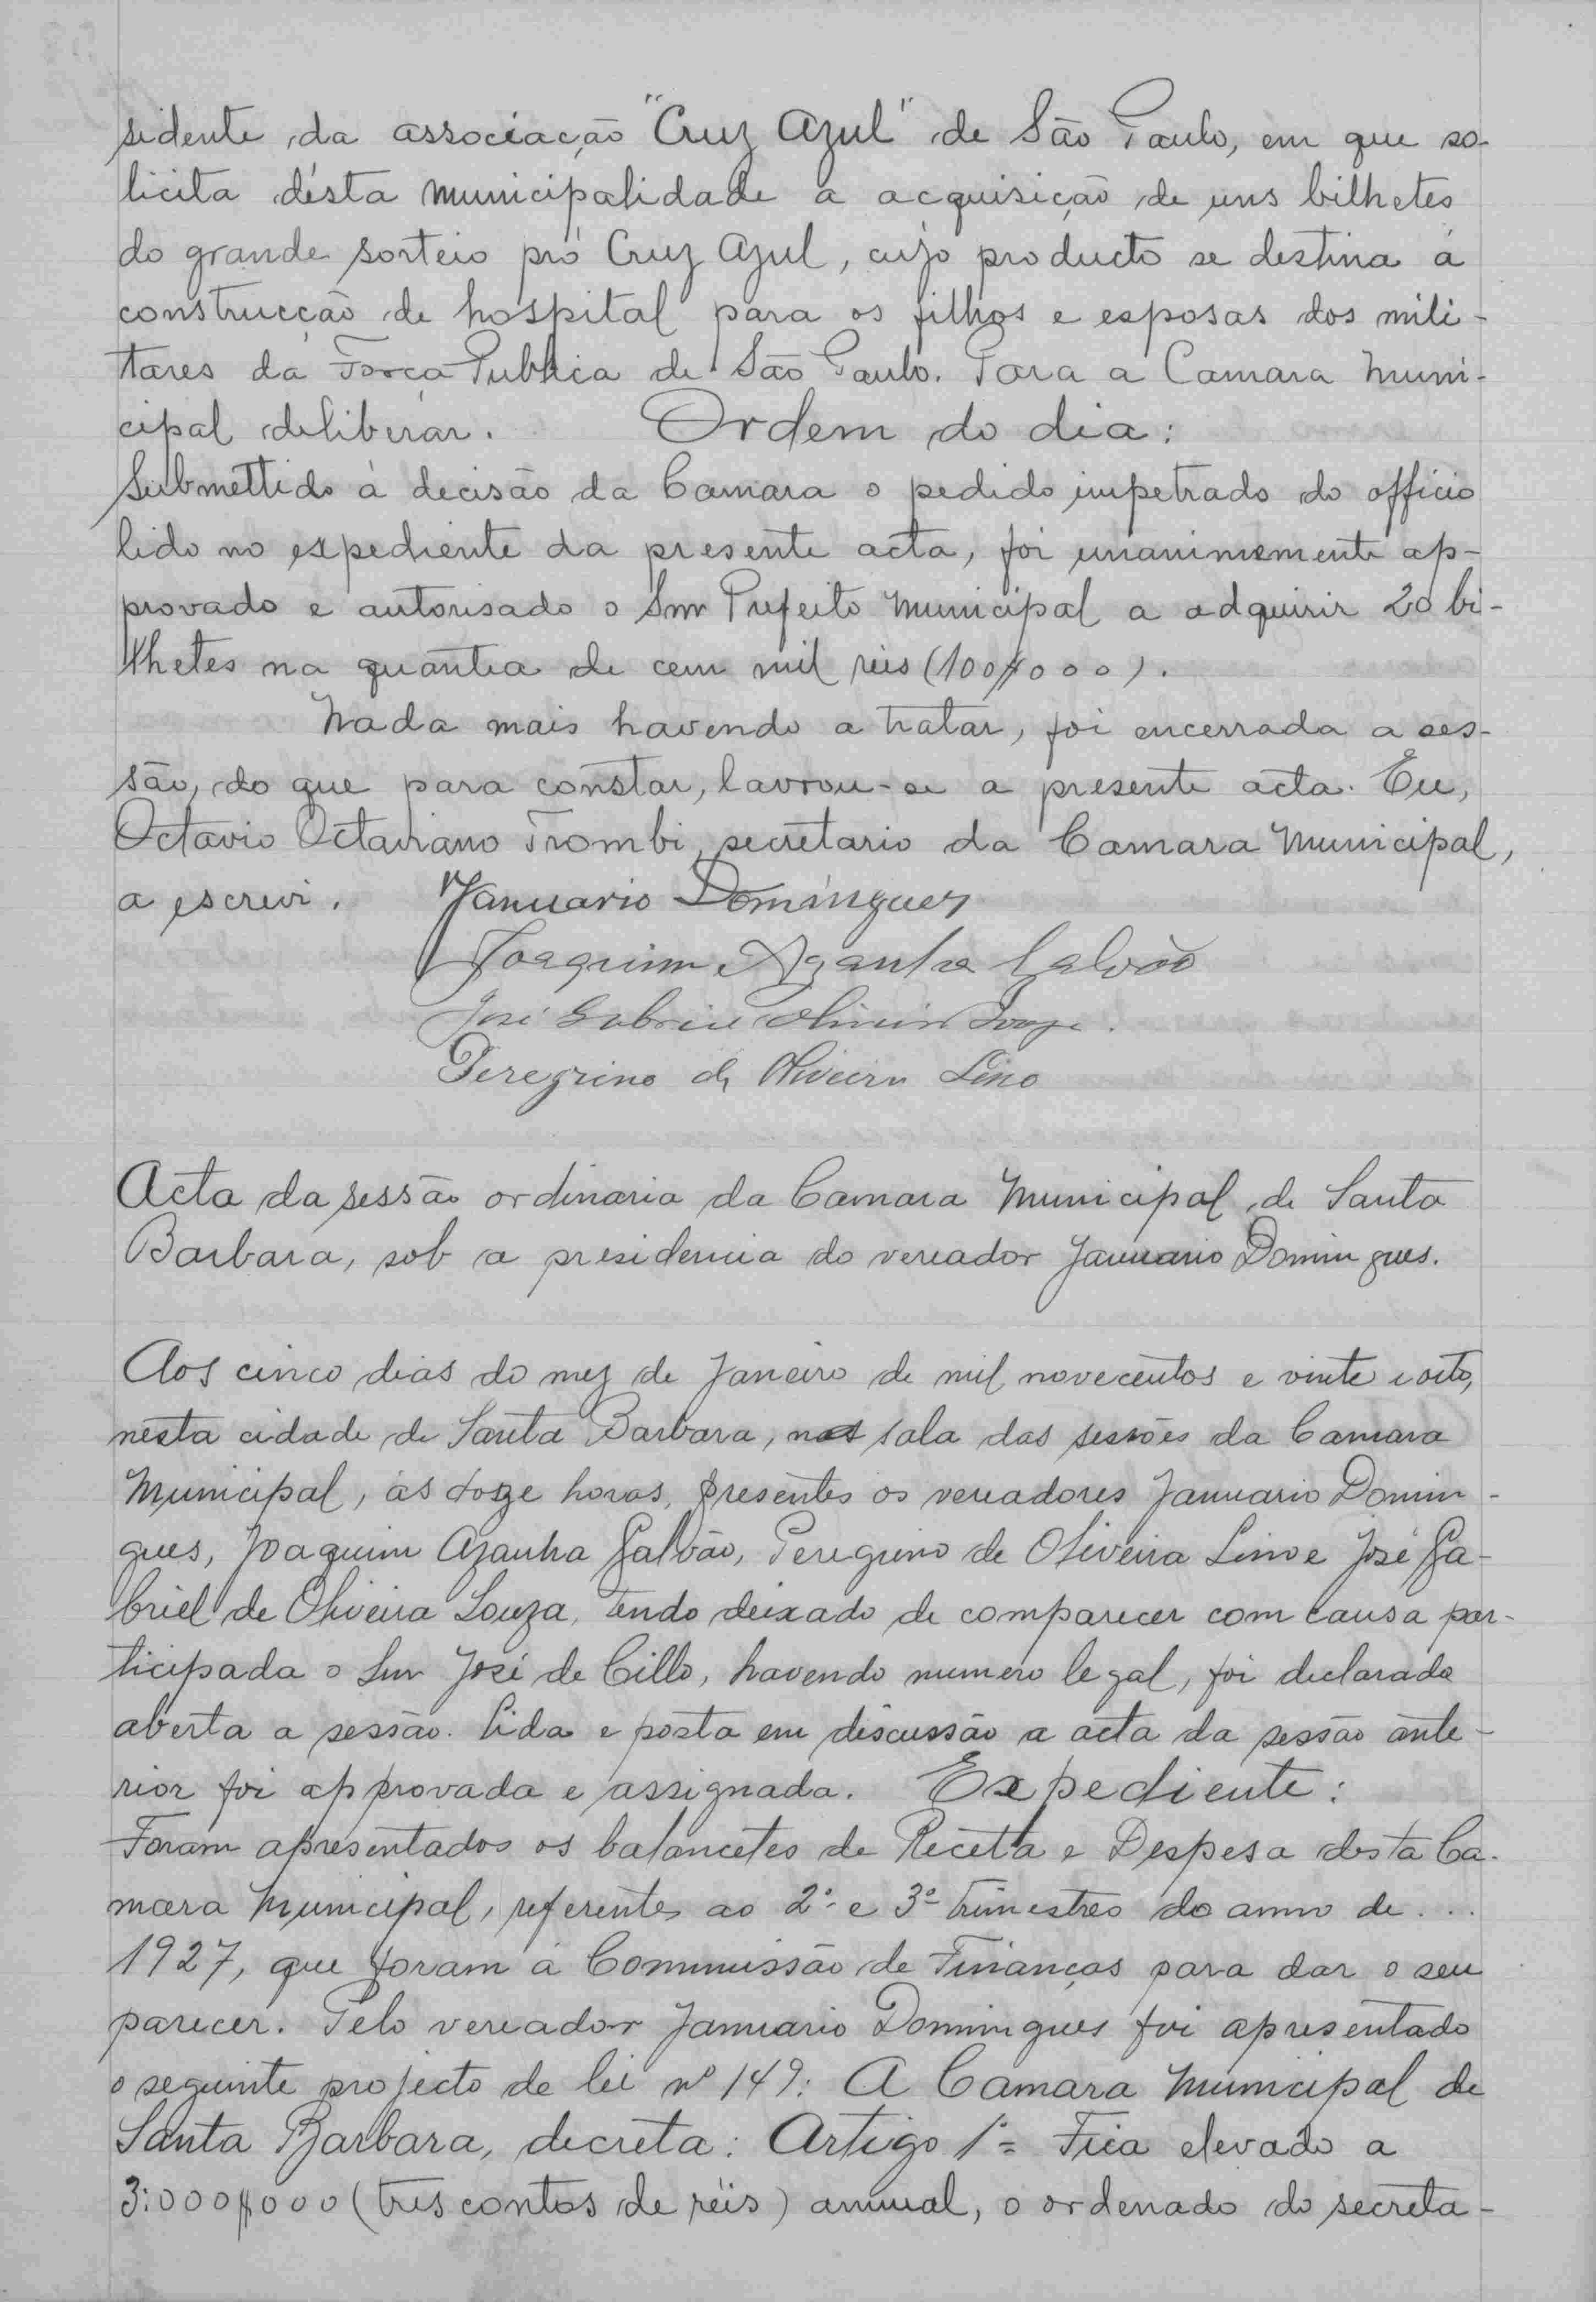 sidente da associação "Cruz Azul" de São Paulo, em que so-
licita désta Municipalidade a acquisição de uns bilhetes
do grande sorteio pró Cruz Azul, cujo producto se destina á
construcção de hospital para os filhos e esposas dos mili-
tares da Força Publica de São Paulo. Para a Camara Muni-
cipal deliberar. Ordem do dia:
Submettido á decisão da Camara o pedido impetrado do officio
lido no expediente da presente acta, foi unanimemente ap-
provado e autorisado o Snr Prefeito Municipal a adquirir 20 bi-
lhetes na quantia de cem mil reis (100$000).
Nada mais havendo a tratar, foi encerrada a ses-
são, do que para constar, lavrou-se a presente acta. Eu,
Octavio Octaviano Trombi, secretario da Camara Municipal,
a escrevi. Januario Domingues
Joaquim Azanha Galvão
José Gabriel Oliveira Souza.
Peregrino de Oliveira Lino
Acta da sessão ordinaria da Camara Municipal de Santa
Barbara, sob a presidencia do vereador Januario Domingues.
Aos cinco dias do mez de Janeiro de mil novecentos e vinte e oito,
nesta cidade de Santa Barbara, na sala das sessões da Camara
Municipal, ás doze horas, presentes os vereadores Januario Domin-
gues, Joaquim Azanha Galvão, Peregrino de Oliveira Lino e José Ga-
briel de Oliveira Souza, tendo deixado de comparecer com causa par-
ticipada o Snr José de Cillo, havendo numero legal, foi declarada
aberta a sessão. Lida e posta em discussão a acta da sessão ante-
rior foi approvada e assignada. Expediente:
Foram apresentados os balancetes de Receita e Despesa desta Ca-
mara Municipal, referentes ao 2º e 3º trimestres do anno de...
1927, que foram á Commissão de Finanças para dar o seu
parecer. Pelo vereador Januario Domingues foi apresentado
o seguinte projecto de lei nº 149: A Camara Municipal de
Santa Barbara, decreta: Artigo 1º= Fica elevado a
3:000$000 (tres contos de réis) annual, o ordenado do secreta-